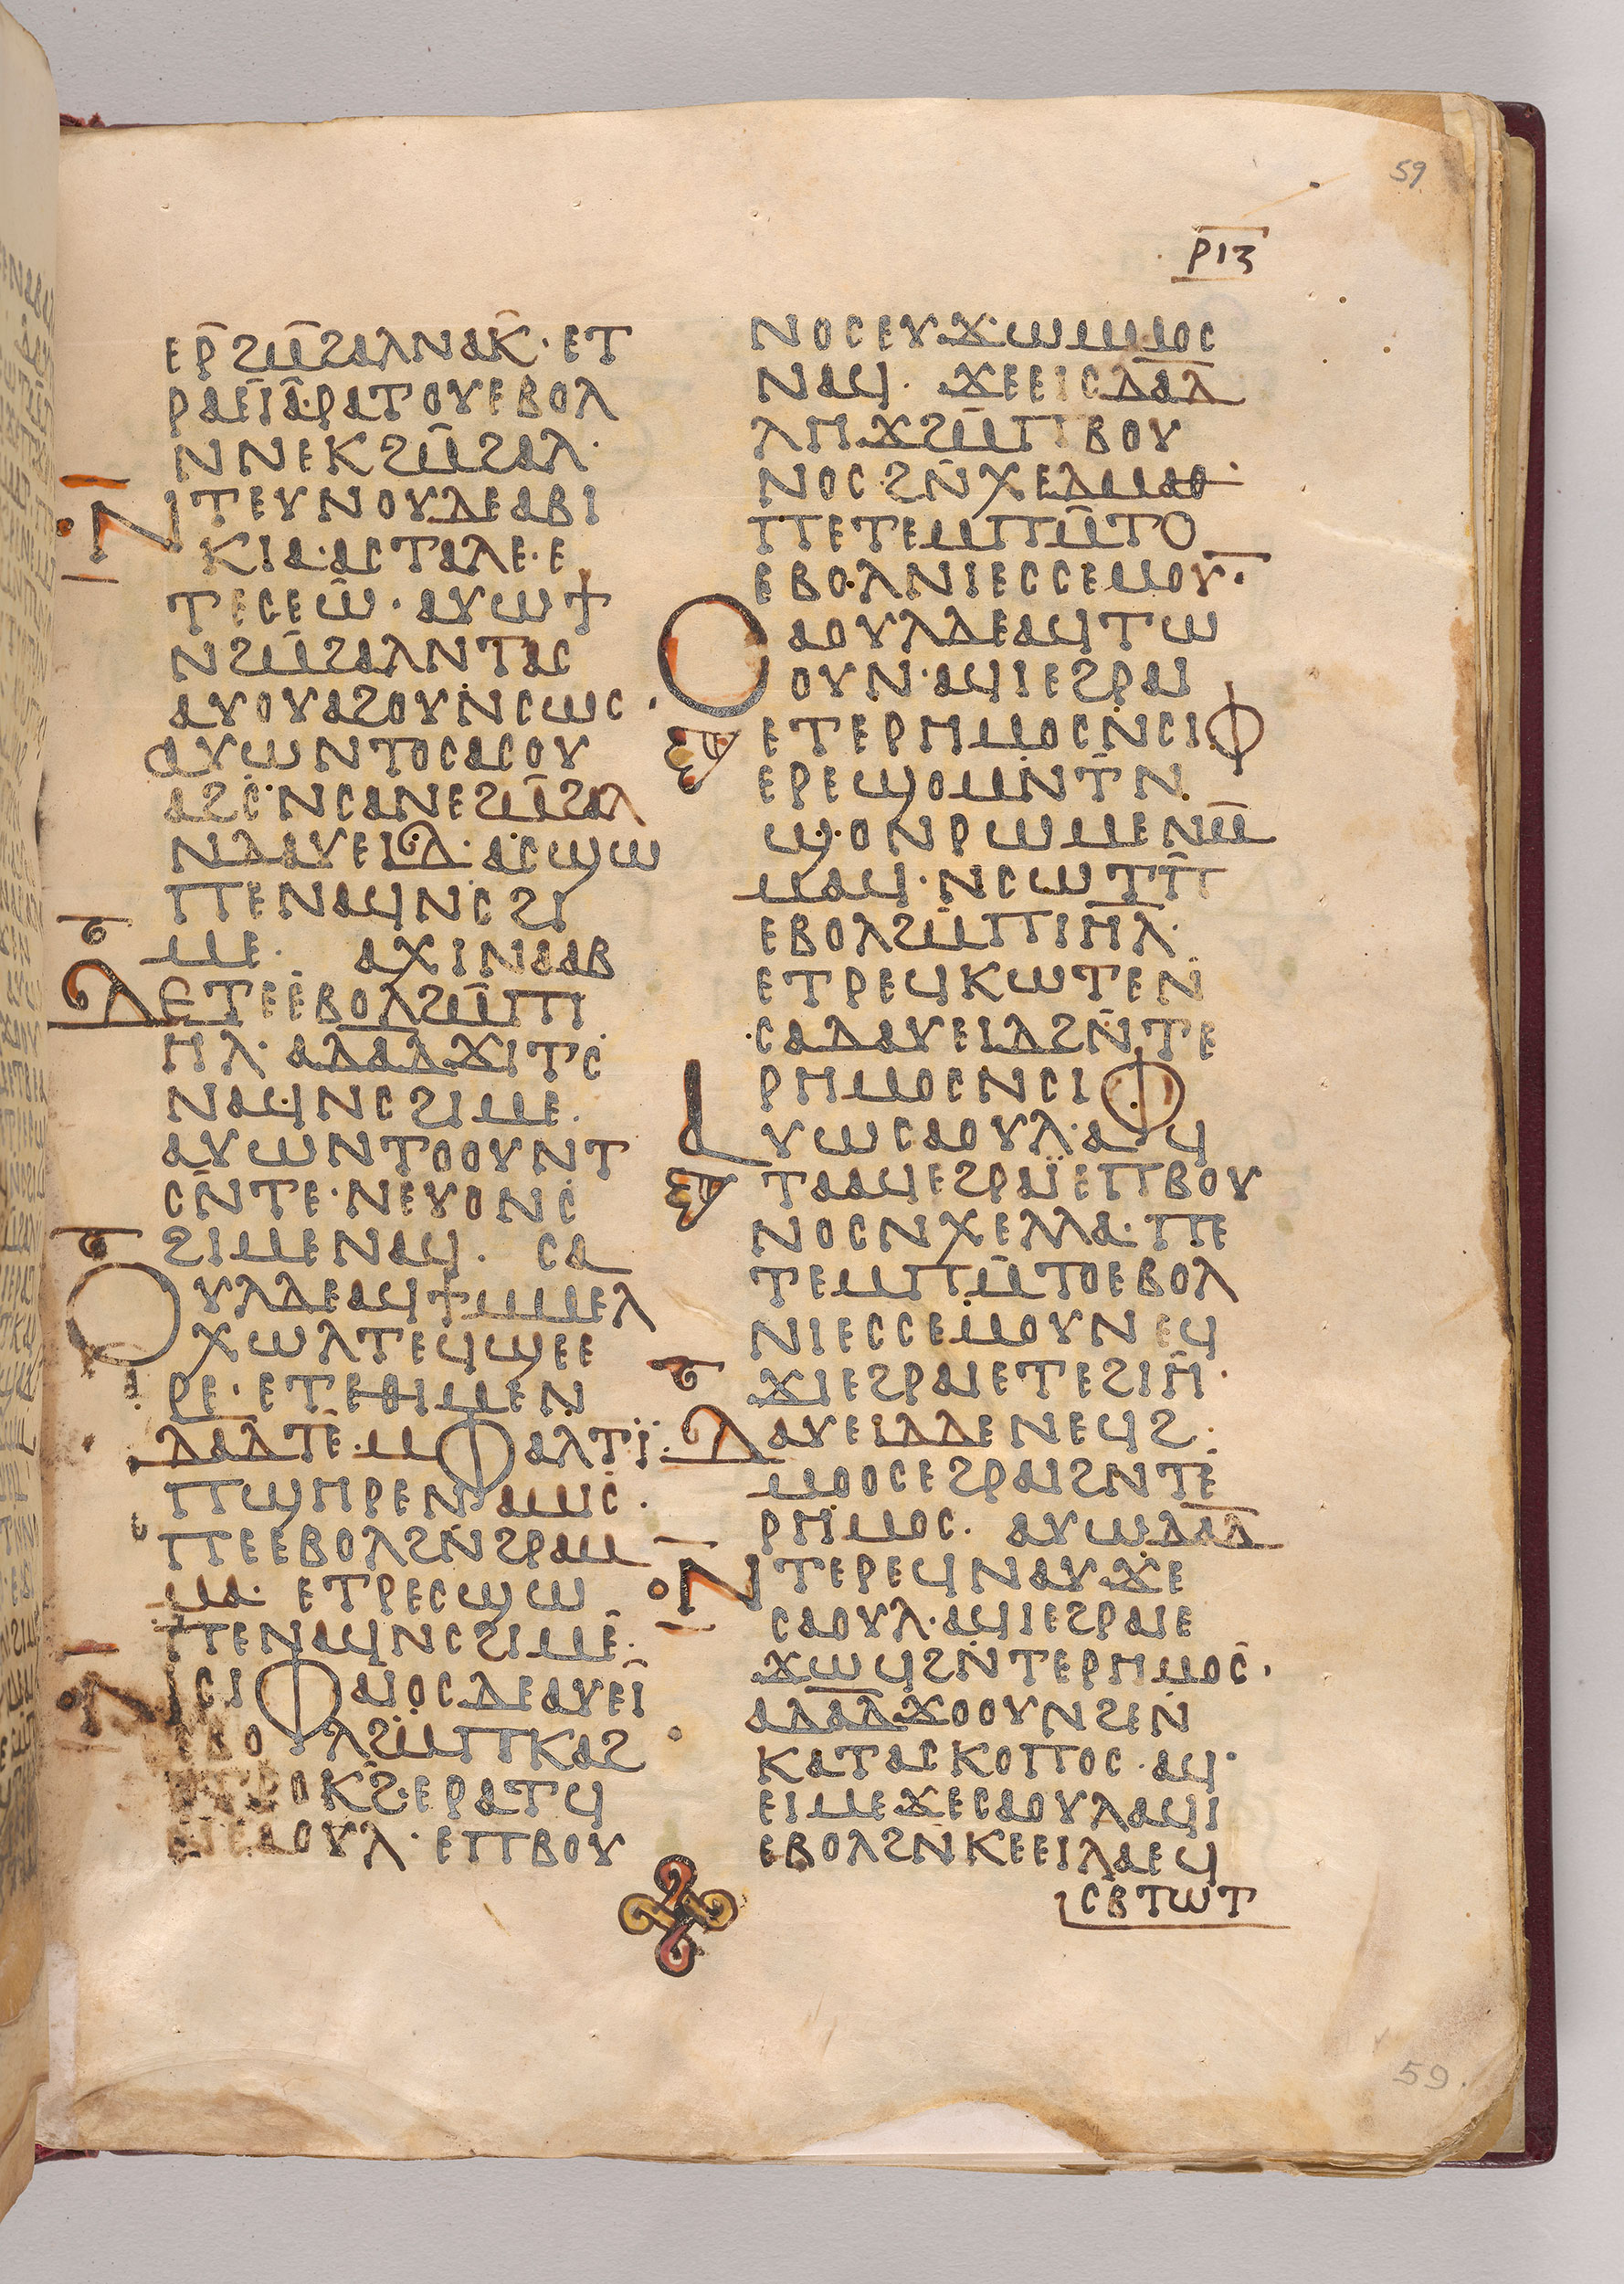 59
ⲣⲓⲍ
ⲉⲣ̄ϩⲙ̄ϩⲁⲗⲛⲁⲕ̄· ⲉⲧ
ⲣⲁⲉⲓⲁ·ⲣⲁⲧⲟⲩⲉⲃⲟⲗ
ⲛⲛⲉⲕϩⲙ̄ϩⲁⲗ·
ⲛ̄ⲧⲉⲩⲛⲟⲩⲇⲉⲁⲃⲓ
ⲕⲓⲁ·ⲁⲥⲧⲁⲗⲉ·ⲉ
ⲧⲉⲥⲉⲱ̄· ⲁⲩⲱϯ
ⲛϩⲙ̄ϩⲁⲗⲛⲧⲁⲥ
ⲁⲩⲟⲩⲁϩⲟⲩⲛⲥⲱⲥ·
ⲁⲩⲱⲛⲧⲟⲥⲁⲥⲟⲩ
ⲁϩⲥ·ⲛⲥⲁⲛⲉϩⲙ̄ϩⲁⲗ
ⲛⲇⲁⲩⲉⲓⲇ·ⲁⲥϣⲱ
ⲡⲉⲛⲁϥⲛⲥϩⲓ
ⲙⲉ· ⲁⲭⲓⲛⲁⲁⲃ
ⲇⲉⲧⲉⲉⲃⲟⲗϩⲙ̄ⲡⲓ
ⲏⲗ· ⲁⲇⲁⲇϫⲓⲧⲥ
ⲛⲁϥⲛⲥϩⲓⲙⲉ·
ⲁⲩⲱⲛⲧⲟⲟⲩⲛⲧ
ⲥⲛ̄ⲧⲉ·ⲛⲉⲩⲟⲛⲥ
ϩⲓⲙⲉⲛⲁϥ· ⲥⲁ
ⲟⲩⲗⲇⲉⲁϥϯⲙⲙⲉⲗ
ⲭⲱⲗⲧⲉϥϣⲉⲉ
ⲣⲉ· ⲉⲧⲉⲑⲓⲙⲉⲛ
ⲇⲁⲇⲧⲉ·ⲙⲫⲁⲗⲧⲓ·
ⲡϣⲏⲣⲉⲛⲁⲙⲓⲥ·
ⲡⲉⲉⲃⲟⲗϩⲛ̄ϩⲣⲁⲙ
ⲙⲁ· ⲉⲧⲣⲉⲥϣⲱ
ⲡⲉⲛⲁϥⲛⲥϩⲓⲙⲉ·
ⲛⲥⲓⲫⲁⲓⲟⲥⲇⲉⲁⲩⲉⲓ
ⲉⲃⲟⲗϩⲙ̄ⲡⲕⲁϩ
ⲟⲕϩ·ⲉⲣⲁⲧϥ
ⲛⲥⲁⲟⲩⲗ· ⲉⲡⲃⲟⲩ
ⲛⲟⲥⲉⲩϫⲱⲙⲙⲟⲥ
ⲛⲁϥ· ϫⲉⲉⲓⲥⲇⲁⲇ
ⲗⲏϫϩⲙ̄ⲡⲃⲟⲩ
ⲛⲟⲥϩⲛ̄ⲭⲉⲗⲙⲁⲟ·
ⲡⲉⲧⲉⲙⲡⲙ̄ⲧⲟ
ⲉⲃⲟ·ⲗⲛⲓⲉⲥⲥⲉⲙⲟⲩ·
ⲥⲁⲟⲩⲗⲇⲉⲁϥⲧⲱ
ⲟⲩⲛ·ⲁϥⲓⲉϩⲣⲁⲓ
ⲉⲧⲉⲣⲏⲙⲟⲥⲛⲥⲓⲫ
ⲉⲣⲉϣⲟⲙⲛ̄ⲧⲛ
ϣⲟⲛⲣⲱⲙⲉⲛⲙ̄
ⲙⲁϥ·ⲛⲥⲱⲧⲡ̄
ⲉⲃⲟⲗϩⲙ̄ⲡⲓⲏⲗ·
ⲉⲧⲣⲉϥⲕⲱⲧⲉⲛ
ⲥⲁⲇⲁⲩⲉⲓⲇϩⲛ̄ⲧⲉ
ⲣⲏⲙⲟⲥⲛⲥⲓⲫ
ⲁⲩⲱⲥⲁⲟⲩⲗ·ⲁϥ
ⲧⲁⲁϥⲉϩⲣⲁⲓ̈ⲉⲡⲃⲟⲩ
ⲛⲟⲥⲛⲭⲉⲗⲙⲁ·ⲡⲉ
ⲧⲉⲙⲡⲙ̄ⲧⲟⲉⲃⲟⲗ
ⲛⲓⲉⲥⲥⲉⲙⲟⲩⲛⲉϥ
ϫⲓⲉϩⲣⲁⲓⲉⲧⲉϩⲓⲏ·
ⲇⲁⲩⲉⲓⲇⲇⲉⲛⲉϥϩ
ⲙⲟⲟⲥⲉϩⲣⲁⲓϩⲛⲧⲉ
ⲣⲏⲙⲟⲥ· ⲁⲩⲱⲇⲁⲇ
ⲛ̄ⲧⲉⲣⲉϥⲛⲁⲩϫⲉ
ⲥⲁⲟⲩⲗ·ⲁϥⲓⲉϩⲣⲁⲓⲉ
ϫⲱϥϩⲛ̄ⲧⲉⲣⲏⲙⲟⲥ·
ⲁⲇⲁⲇϫⲟⲟⲩⲛϩⲉⲛ
ⲕⲁⲧⲁⲥⲕⲟⲡⲟⲥ·ⲁϥ
ⲉⲓⲙⲉϫⲉⲥⲁⲟⲩⲗⲁϥⲓ
ⲉⲃⲟⲗϩⲛ̄ⲕⲉⲉⲓⲗⲁⲉϥ
ⲥⲃ̄ⲧⲱⲧ
59.